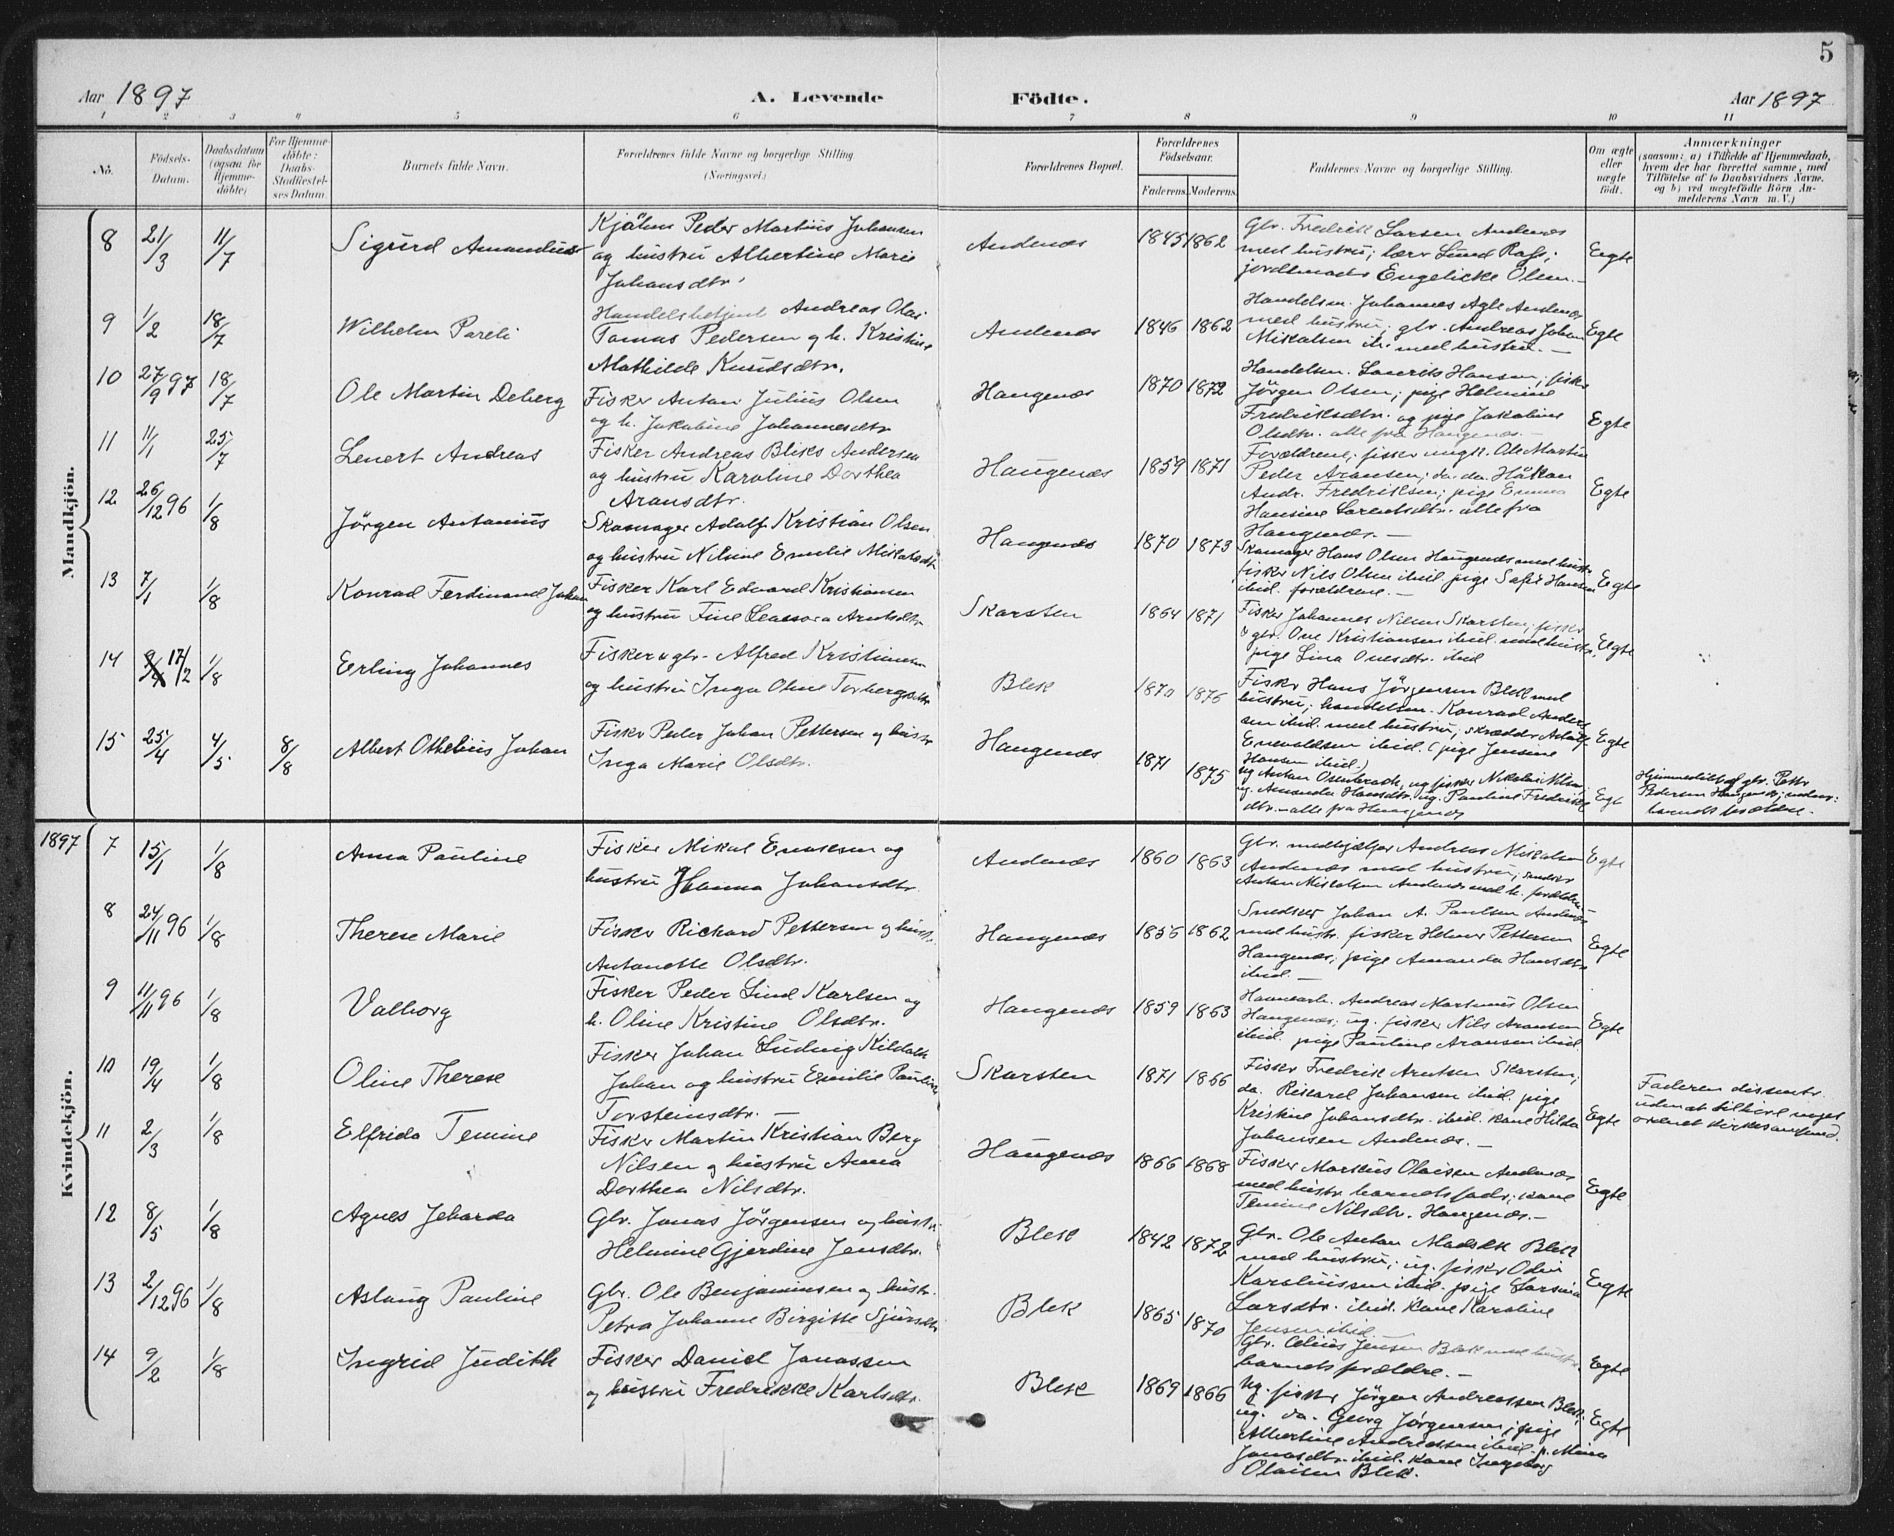 5
Aar 1897 A. Levende Födte. Aar 1897
1 2 3 4 5 6 7 8 9 10 11
No.
Födsels-Datum.
Daabsdatum (ogsaa för Hjemme-döbte)
For Hjemme-döbte: Daabs-Stadfæstel-ses Datum
Barnets fulde Navn.
Forældrenes fulde Navne og borgerlige Stilling (Næringsvei.)
Forældrenes Bopæl.
Forældrenes Födselsaar.
Faderens. Moderens.
Faddernes Navne og borgerlige Stilling.
Om ægte eller uægte födt.
Anmærkninger
(saasom: a) i Tilfælde af Hjemmedaab,
hvem der har forrettet samme, med
Tilföielse af to Daabsvidners Navne.
og b) ved uægtefödte Börn An-
melderens Navn m. V.)
Mandkjön.
8 21/3 11/7 Sigurd Amandus
Peder Martius Johansen
og hustru Albertine Marie
Johansdtr.
Andenæs 1845 1862
Gbr. Fredrik Larsen Andenæs
med hustru;
jordemoder Engelicke Olsen.
Egte
9 1/2 18/7 Wilhelm Pareli
Handelsbetjent Andreas Olai
Tomas Pedersen og h. Kristine
Mathilde Knudsdtr.
Andenæs 1846 1862
Handelsm. Johannes Agle Andenæs
med hustru; gbr. Andreas Johan
Mikalsen ib. med hustru.
Egte
10 27/9 97 18/7 Ole Martin Deberg
Fisker Anton Julius Olsen
og h. Jakobine Johannesdtr.
Haugenæs 1870 1872
Handelsm. Laurits Hansen; fisker
Jörgen Olsen; pige Helmine
Fredriksdtr. og pige Jakobine
Olsdtr. alle fra Haugenæs.
Egte
11 11/1 25/7 Lenert Andreas
Fisker Andreas Bliks Andersen
og hustru Karoline Dorthea
Aronsdtr.
Haugenæs 1859 1871
Forældrene; fisker ungk. Ole Martin
Peder Aronsen; da. da. Håkon
Andr. Fredriksen; pige Emma
Hansine Lorentsdtr. alle fra
Haugenæs.
Egte
12 26/12 96 1/8 Jörgen Antonius
Skomager Adolf Kristian Olsen
og hustru Nilsine Emilie Mikalsdtr.
Haugenæs 1870 1873
Skomager Hans Olsen Haugenæs med hustr.
fisker Nils Olsen ibid. pige Sofie Hansen
ibid. forældrene.
Egte
13 7/1 1/8 Konrad Ferdinand Johan
Fisker Karl Edvard Kristiansen
og hustru Fine Leonora Arntsdtr.
Skarsten 1864 1871
Fisker Johannes Nilsen Skarsten; fisker
& gbr. One Kristiansen ibid. med hustr.
pige Lina Onesdtr. ibid
Egte
14 17/2 1/8 Erling Johannes
Fisker & gbr. Alfred Kristiansen
og hustru Inga Oline Torbergsdtr.
Blek 1870 1876
Fisker Hans Jörgensen Blek med
hustru; handelsm. Konrad Ander-
sen ibid. med hustru; skrædder Adolf
Enevoldsen ibid. (pige Jensine
Hansen ibid.)
Egte
15 25/4 4/5 8/8 Albert Othelius Johan
Fisker Peder Johan Pettersen og hustr.
Inga Marie Olsdtr.
Haugenæs 1871 1875
ug. fisker Nikolai
ug. Amanda Hansdtr. ug. Pauline Fredriks-
dtr. alle fra Haugenæs
Egte
Hjemmedöbt af gbr. Pettr
Pedersen Haugenæs;
barnets forældre.
Kvindekjön.
1897 7 15/1 1/8 Anna Pauline
Fisker Mikal Enoksen og
hustru Hanna Johansdtr.
Andenæs 1860 1863
Gbr. medhjælper Andreas Mikalsen
Andenæs med hustru; snedker
Anton Mikalsen Andenæs med h. forældr.
Egte
8 24/11 96 1/8 Therese Marie
Fisker Richard Pettersen og hustr.
Antonette Olsdtr.
Haugenæs 1856 1862
Snedker Johan A. Paulsen Andenæs
med hustr. fisker Helmer Pettersen
Haugenæs; pige Amanda Hansdtr.
ibid.
Egte
9 11/11 96 1/8 Valborg
Fisker Peder Lind Karlsen og
h. Oline Kristine Olsdtr.
Haugenæs 1859 1863
Havnearb. Andreas Martinus Olsen
Haugenæs; ug. fisker Nils Aronsen
ibid. pige Pauline Aronsen ibid.
Egte
10 19/4 1/8 Oline Therese
Fisker Johan Ludvig Kildahl
Johan og hustru Emilie Pauline
Torsteinsdtr.
Skarsten 1871 1866
Fisker Fredrik Arntsen Skarsten;
da. Rikard Johansen ibid. pige
Kristine Johansdtr. ibid. kone Hilda
Johansen Andenæs.
Egte
Faderen dissenter
uden at tilhöre noget
ordnet kirkesamfund.
11 2/3 1/8 Elfrida Temine
Fisker Martin Kristian Berg
Nilsen og hustru Anna
Dorthea Nilsdtr.
Haugenæs 1866 1868
Fisker Markus Olaisen Andenæs
med hustr. barnets fader; kone
Temine Nilsdtr. Haugenæs.
Egte
12 8/5 1/8 Agnes Jeharda
Gbr. Jonas Jörgensen og hustr.
Helmine Gjerdine Jensdtr.
Blek 1842 1872
Gbr. Ole Anton Madsen Blek
med hustru; ug. fisker Odin
Karoliussen ibid. pige Larsine
Larsdtr. ibid. kone Karoline
Jensen ibid
Egte
13 2/12 96 1/8 Aslaug Pauline
Gbr. Ole Benjaminsen og hustr.
Petra Johanne Birgitte Sjursdtr.
Blek 1865 1870
Gbr. Jensen Blek med hustr.
barnets forældre.
Egte
14 9/2 1/8 Ingrid Judith
Fisker Daniel Jonassen
og hustru Fredrikke Karlsdtr.
Blek 1869 1866
Ug. fisker Jörgen Andreassen Blek,
ug. da. Georg Jörgensen; pige
Albertine Andreassen ibid. p. Mina
Jonasdtr. ibid. kone Ingeborg
Olaisen Blek.
Egte